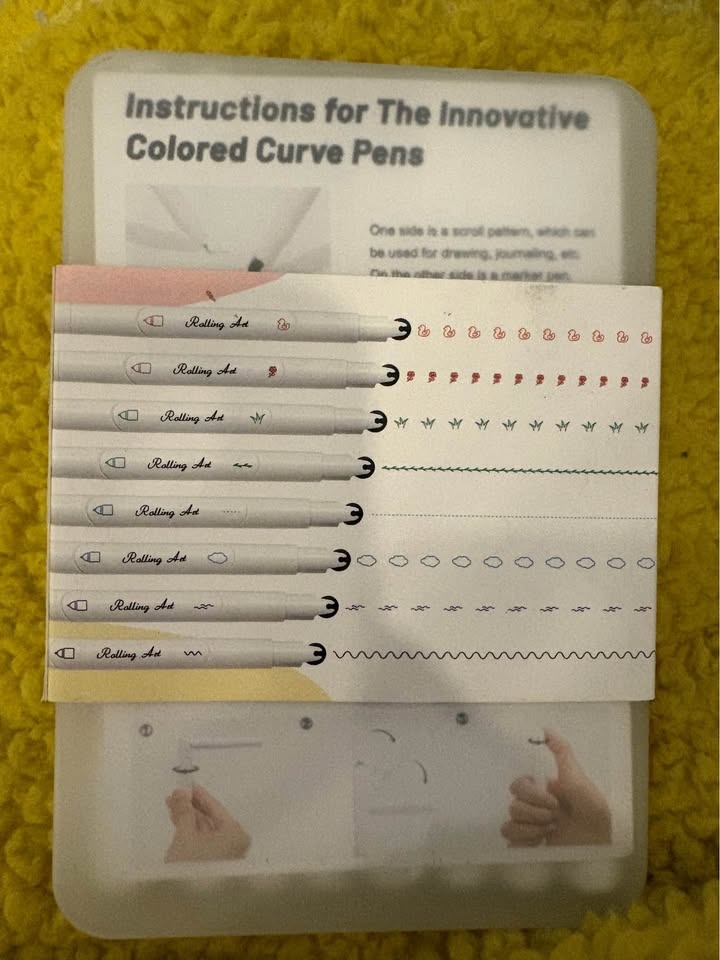 Instructions for The Innovative
Colored Curve Pens
One side is a scroll pattern, which can
be used for drawing, journaling, etc.
On the other side is a marker pen,
Rolling Art
Rolling Art
Rolling Art
Rolling Art
Rolling Art
Rolling Art
Rolling Art
Rolling Art
① ② ③